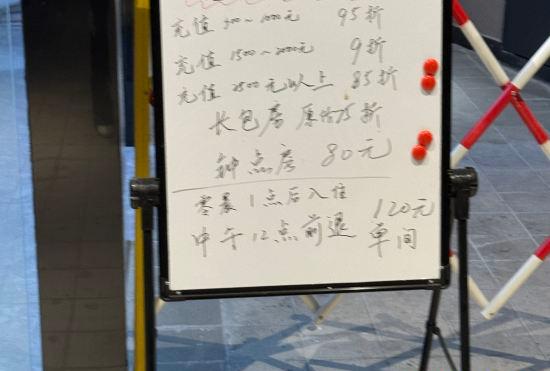 充值500~1000元 95折
充值1500~2000元 9折
充值2500元以上 85折
长包房 原价75折
钟点房 80元
零晨1点后入住
中午12点前退 120元
单间